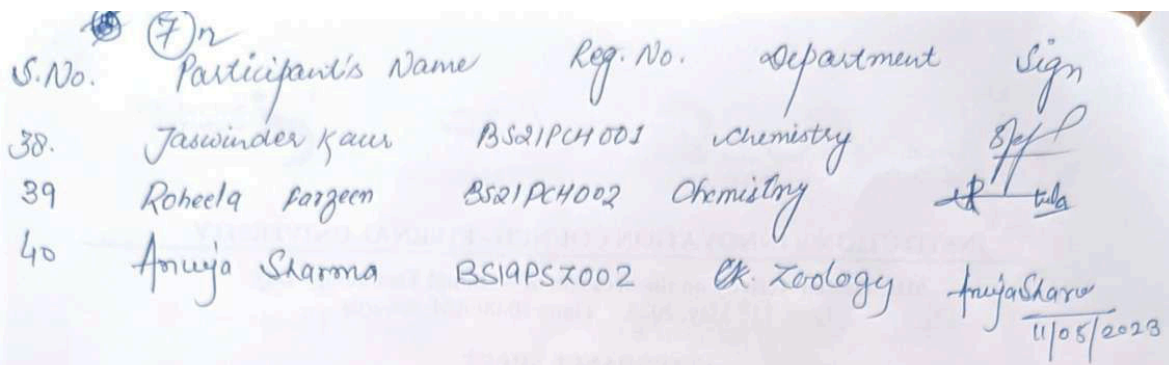 7
S.No. Participant's Name Reg. No. Department Sign
38. Jaswinder Kaur BS21PCH001 Chemistry
39 Roheela Farzeen BS21PCH002 Chemistry
40 Anuja Sharma BS19PSZ002 Zoology AnujaSharm
11/05/2023